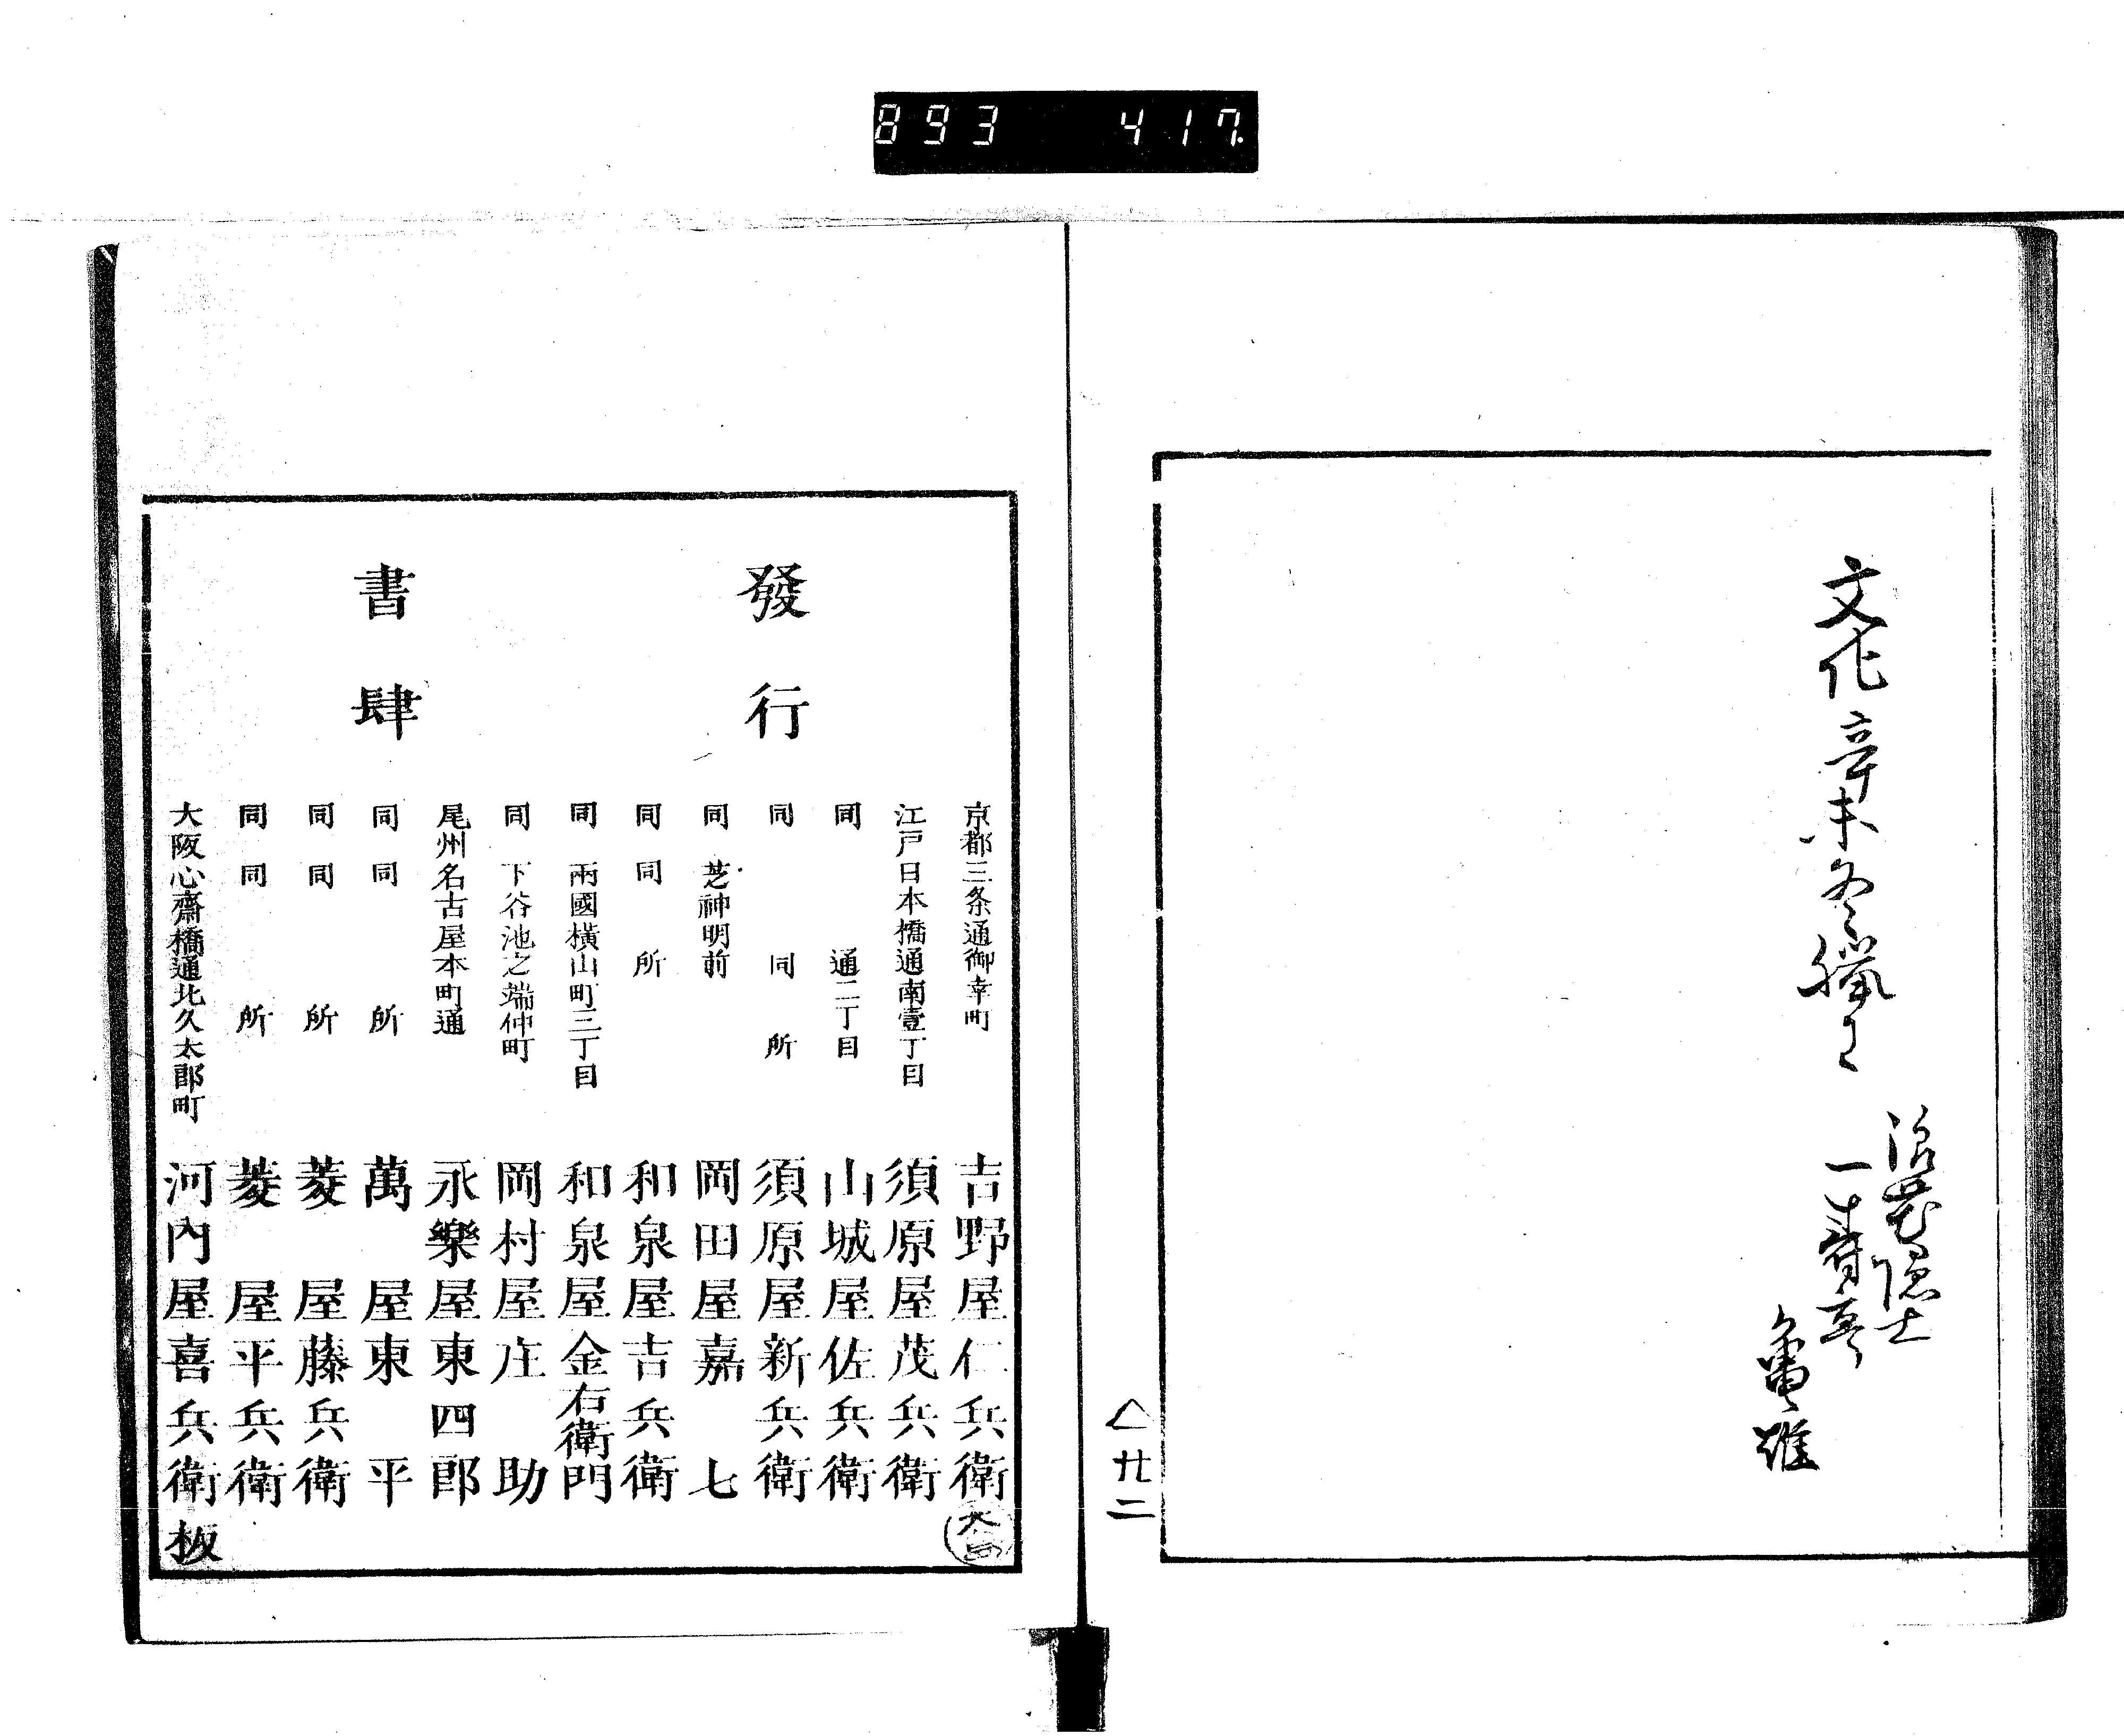 893 417.
文化辛未冬臘日
浪花隠士
一壽亭
亀雄
廿二
發行
書肆
京都三条通御幸町 吉野屋仁兵衛
江戸日本橋通南壹丁目 須原屋茂兵衛
同 通二丁目 山城屋佐兵衛
同 同所 須原屋新兵衛
同 芝神明前 岡田屋嘉七
同 同所 和泉屋吉兵衛
同 兩國横山町三丁目 和泉屋金右衛門
同 下谷池之端仲町 岡村屋庄助
尾州名古屋本町通 永樂屋東四郎
同 同所 萬屋東平
同 同所 菱屋藤兵衛
同 同所 菱屋平兵衛
大阪心齋橋通北久太郎町 河内屋喜兵衛板